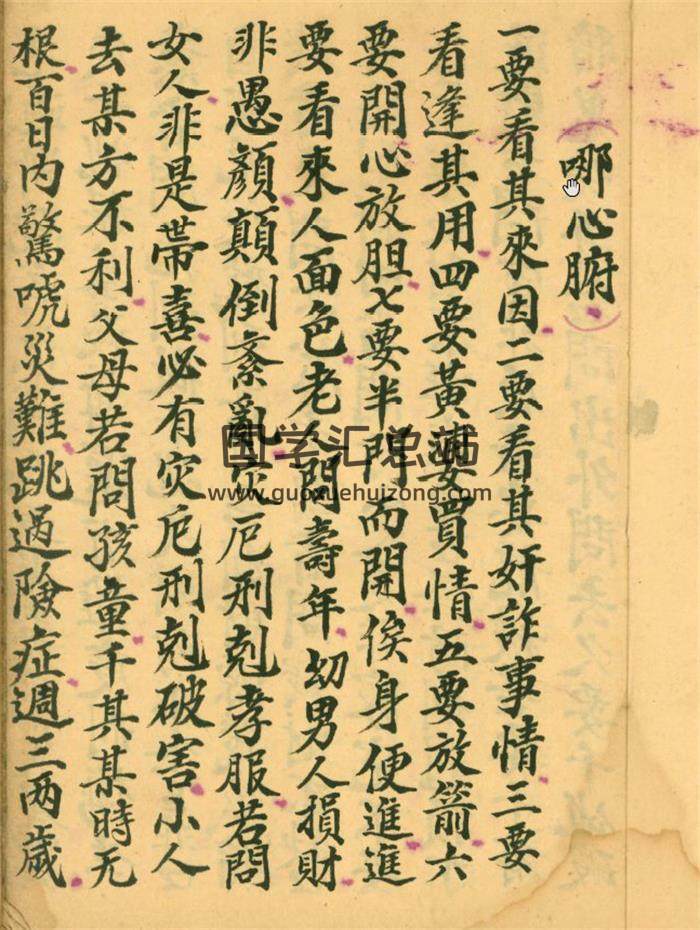 哪心腑
一要看其來因二要看其奸詐事情三要
看逢其用四要黃婆買情五要放箭六
要開心放胆七要半門而開侯身便進進
要看來人面色老人問壽年幼男人損財
非愚顏顛倒紊亂災厄刑剋孝服若問
女人非是帶喜必有灾厄刑剋破害小人
去某方不利父母若問孩童千其某時无
根百日内驚唬災難跳過險症週三两歲
国学汇总站
www.guoxuehuizong.com